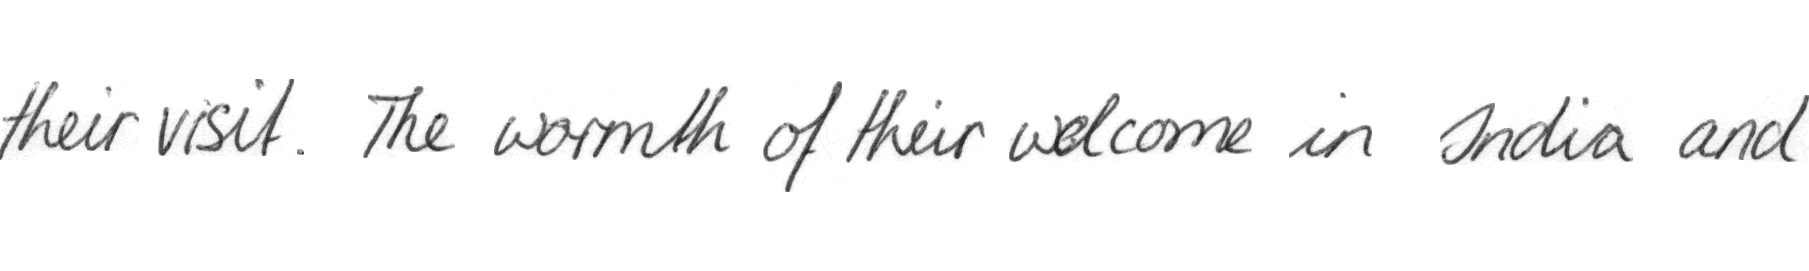 their visit. The warmth of their welcome in India and